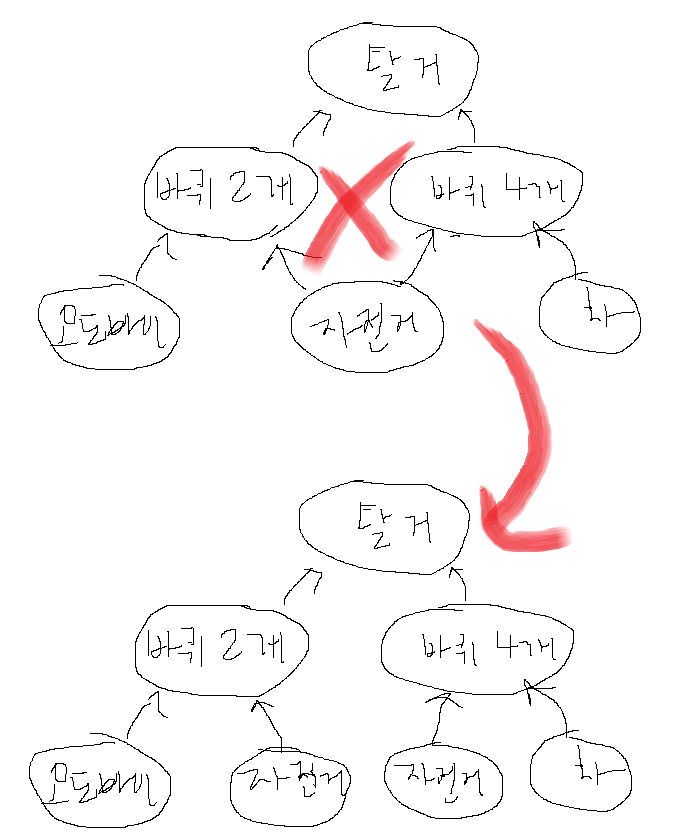 탈거
바퀴 2개
바퀴 4개
오토바이
자전거
차
탈거
바퀴 2개
바퀴 4개
오토바이
자전거
자전거
차